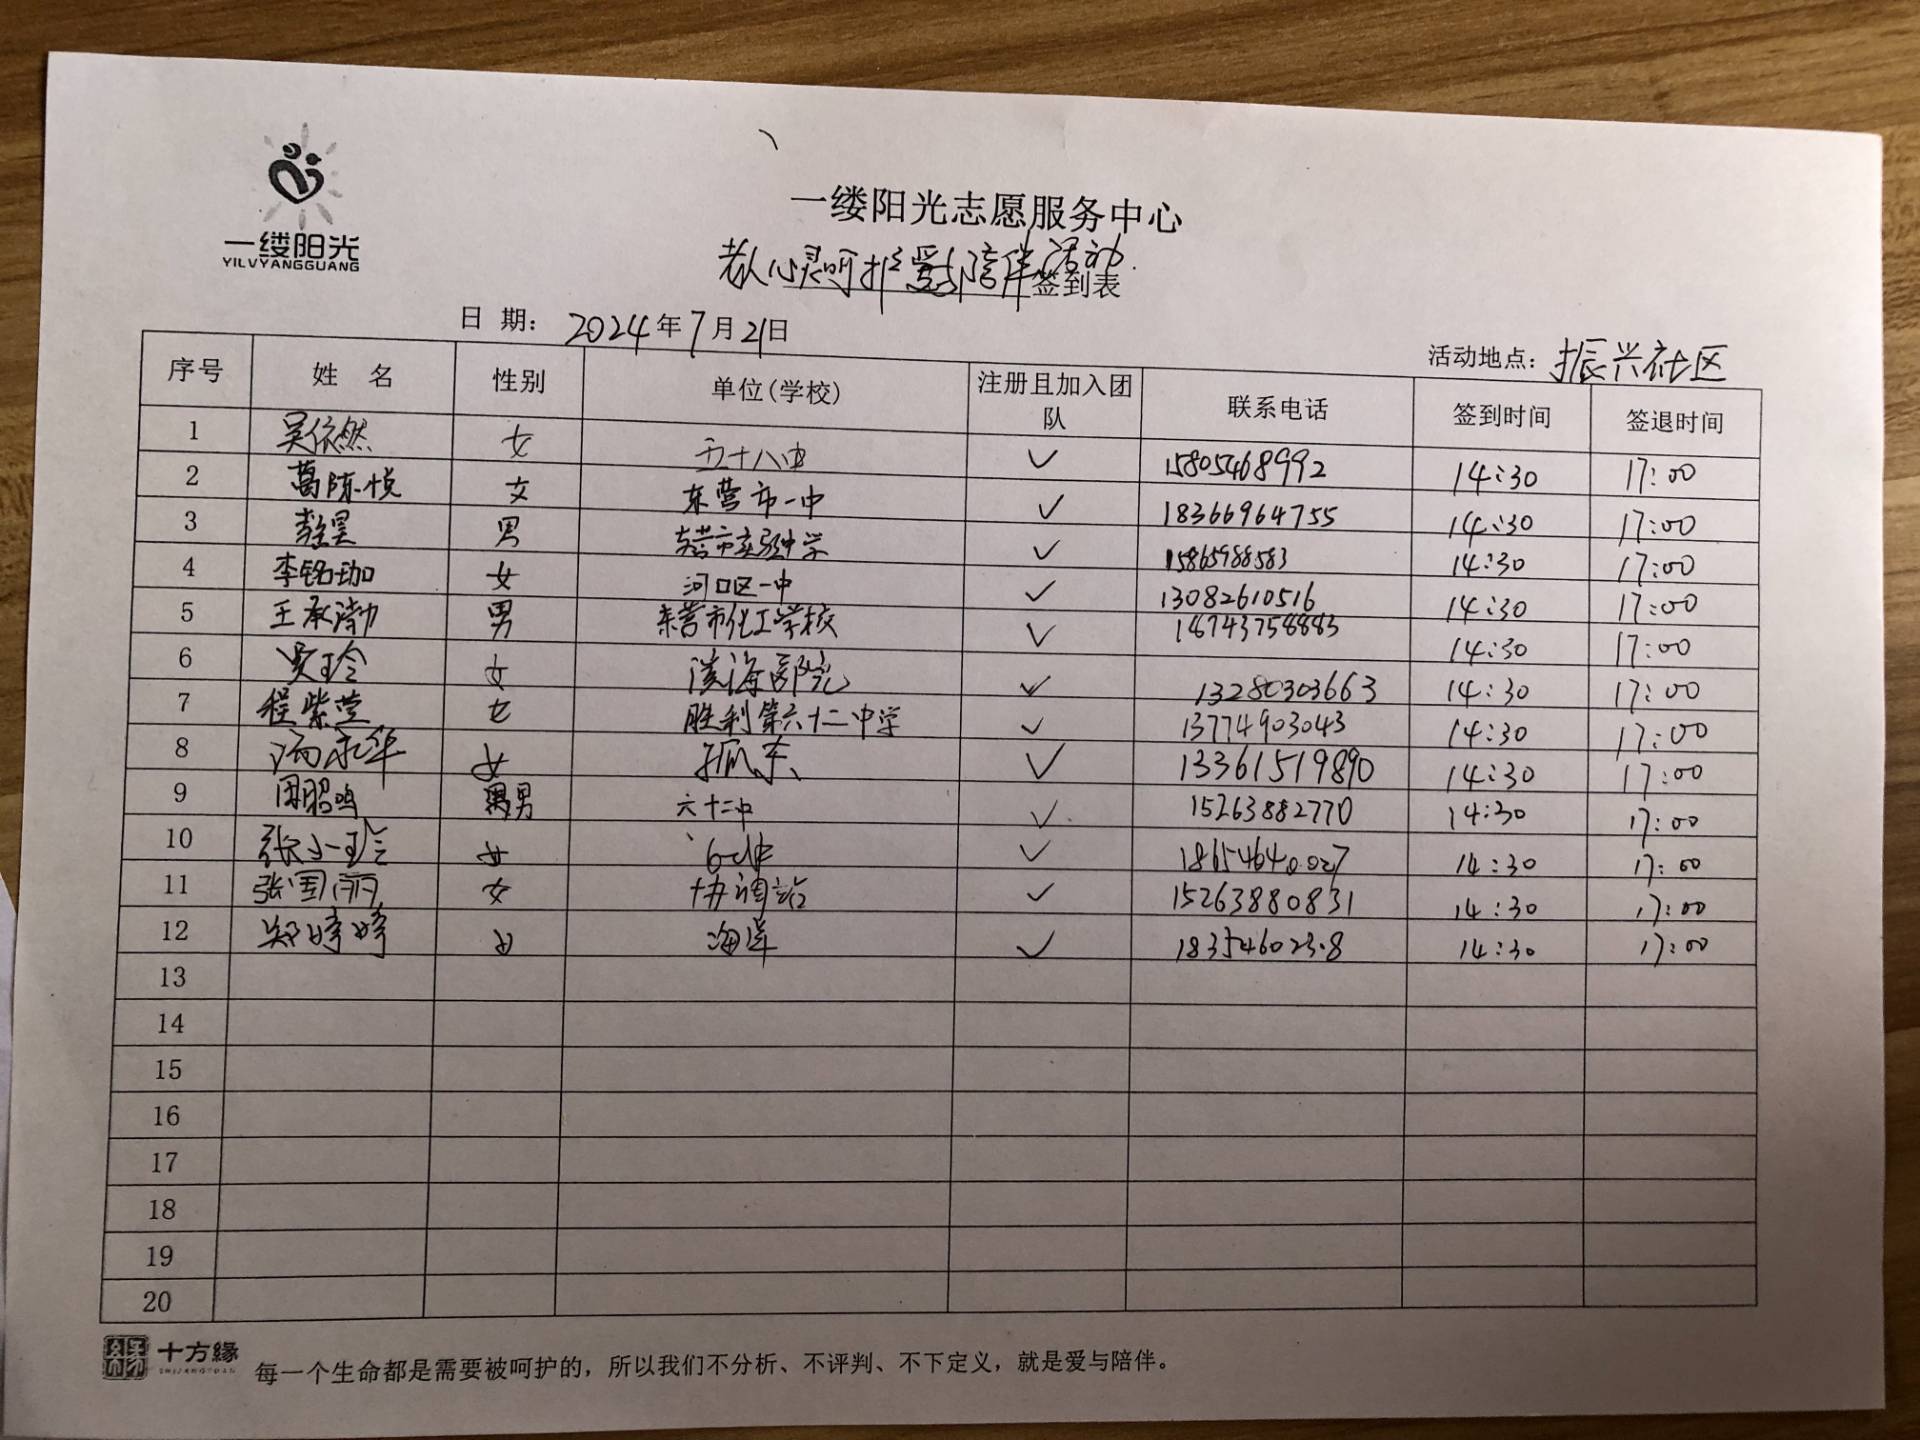 一缕阳光
YILVYANGGUANG
一缕阳光志愿服务中心
老人心灵呵护爱与陪伴活动
签到表
日 期： 2024年7月21日
活动地点：振兴社区
序号 姓 名 性别 单位(学校) 注册且加入团队 联系电话 签到时间 签退时间
1 吴依燃 女 五十八中 ✓ 15805468992 14:30 17:00
2 葛陈悦 女 东营市一中 ✓ 18366964755 14:30 17:00
3 男 东营市实验中学 ✓ 15865988583 14:30 17:00
4 李铭珈 女 河口区一中 ✓ 13082610516 14:30 17:00
5 王承渤 男 东营市化工学校 ✓ 14:30 17:00
6 吴玲 女 滨海医院 ✓ 13280303663 14:30 17:00
7 程紫萱 女 胜利第六十二中学 ✓ 13774903043 14:30 17:00
8 女 孤东 ✓ 13361519890 14:30 17:00
9 田昭鸣 男 六十二中 ✓ 15263882770 14:30 17:00
10 张小玲 女 ✓ 18654640027 14:30 17:00
11 张国丽 女 协调站 ✓ 15263880831 14:30 17:00
12 郑婷婷 女 海洋 ✓ 14:30 17:00
13
14
15
16
17
18
19
20
十方緣
SHIFANGYUAN
每一个生命都是需要被呵护的，所以我们不分析、不评判、不下定义，就是爱与陪伴。